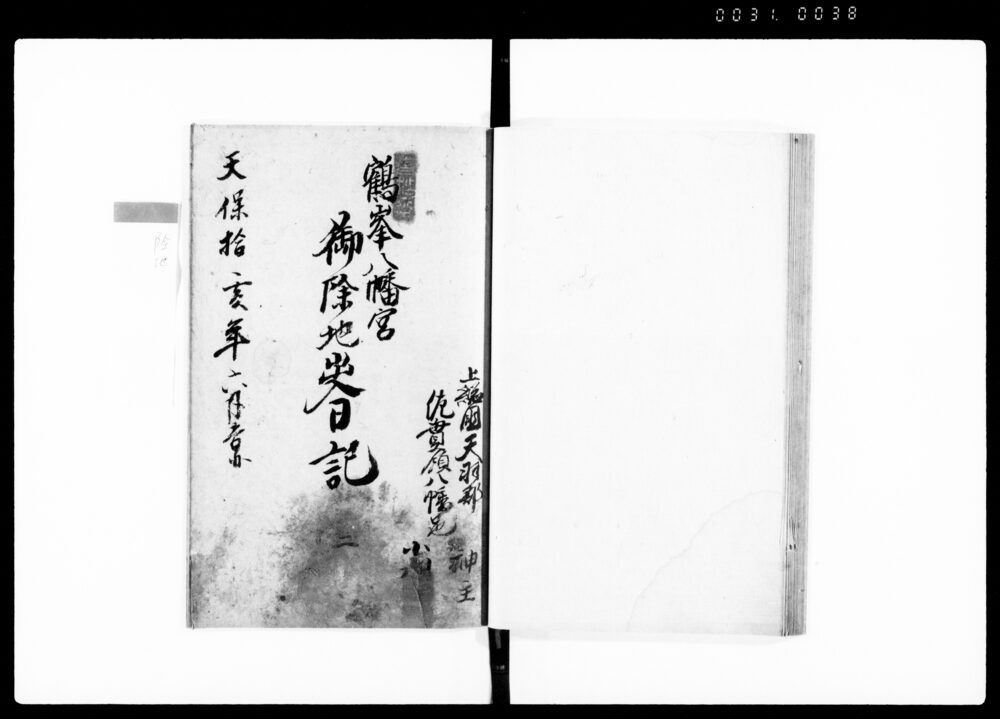 0031. 0038
上総國天羽郡
佐貫領八幡
神主
鶴峯八幡宮
御除地出入日記
二
天保拾亥年六月吉日